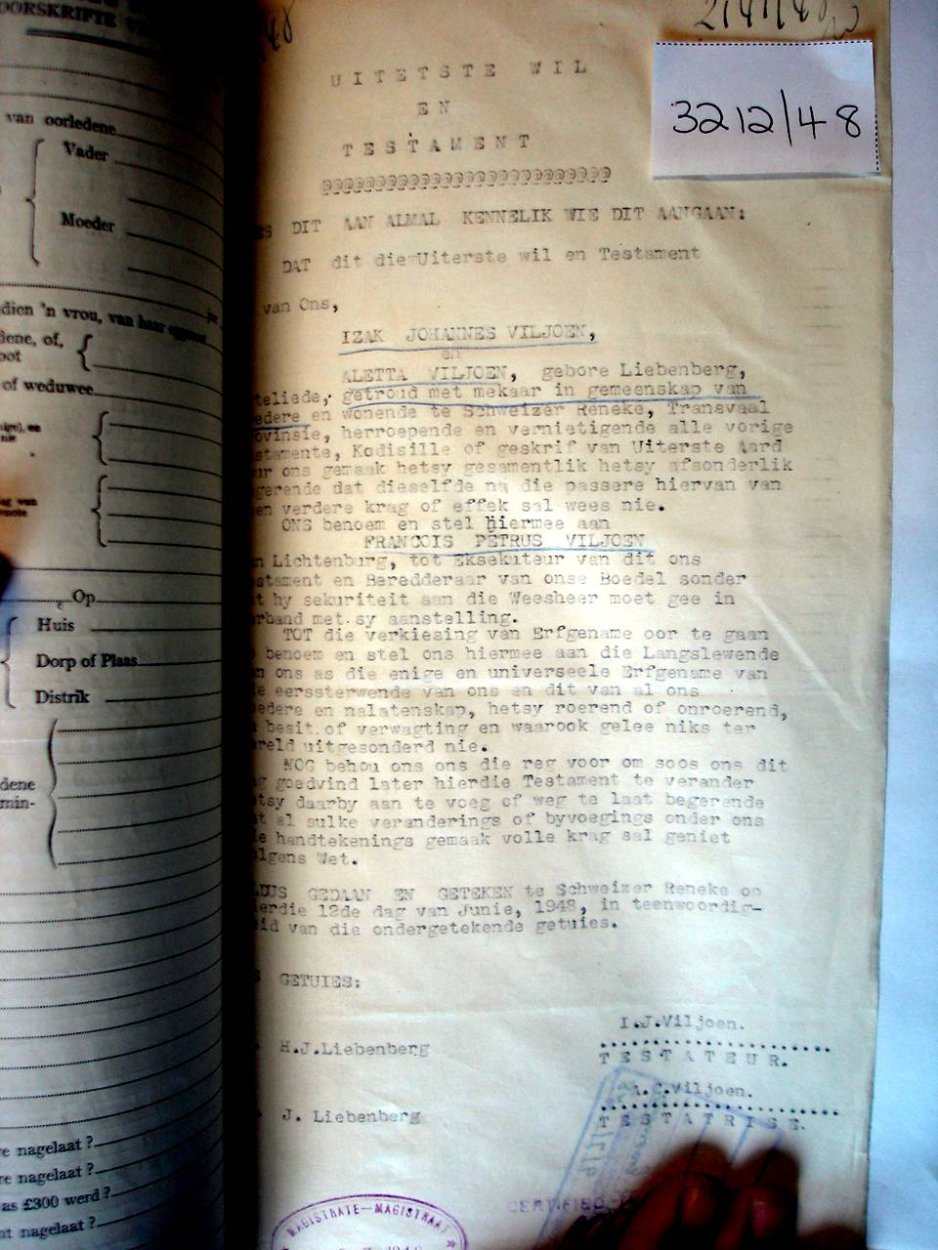 OORSKRIFTE
van oorledene
Vader
Moeder
dien 'n vrou, van haar
dene, of,
oot
of weduwee
Op
Huis
Dorp of Plaas
Distrik
dene
min-
re nagelaat ?
re nagelaat ?
as £300 werd ?
nt nagelaat ?
3212/48
UITETSTE WIL
EN
TESTAMENT
@@@@@@@@@@@@@@@@@@@@@@@@@@
S DIT AAN ALMAL KENNELIK WIE DIT AANGAAN:
DAT dit die Uiterste wil en Testament
van Ons,
IZAK JOHANNES VILJOEN,
en
ALETTA VILJOEN, gebore Liebenberg,
teliede, getroud met mekaar in gemeenskap van
edere en wonende te Schweizer Reneke, Transvaal
ovinsie, herroepende en vernietigende alle vorige
stamente, Kodisille of geskrif van Uiterste Aard
ur ons gemaak hetsy gesamentlik hetsy afsonderlik
gerende dat dieselfde na die passere hiervan van
en verdere krag of effek sal wees nie.
ONS benoem en stel hiermee aan
FRANCOIS PETRUS VILJOEN
n Lichtenburg, tot Eksekuteur van dit ons
stament en Beredderaar van onse Boedel sonder
t hy sekuriteit aan die Weesheer moet gee in
rband met sy aanstelling.
TOT die verkiesing van Erfgename oor te gaan
benoem en stel ons hiermee aan die Langslewende
n ons as die enige en universeele Erfgename van
e eerssterwende van ons en dit van al ons
edere en nalatenskap, hetsy roerend of onroerend,
besit of verwagting en waarook gelee niks ter
reld uitgesonderd nie.
NOG behou ons ons die reg voor om soos ons dit
g goedvind later hierdie Testament te verander
tsy daarby aan te voeg of weg te laat begerende
t al sulke veranderings of byvoegings onder ons
e handtekenings gemaak volle krag sal geniet
lgens Wet.
LDUS GEDAAN EN GETEKEN te Schweizer Reneke op
erdie 12de dag van Junie, 1948, in teenwoordig-
eid van die ondergetekende getuies.
S GETUIES:
I.J.Viljoen.
H.J.Liebenberg
TESTATEUR.
A.C.Viljoen.
J. Liebenberg
TESTATRISE.
CERTIFIED
MAGISTRATE—MAGISTRAAT